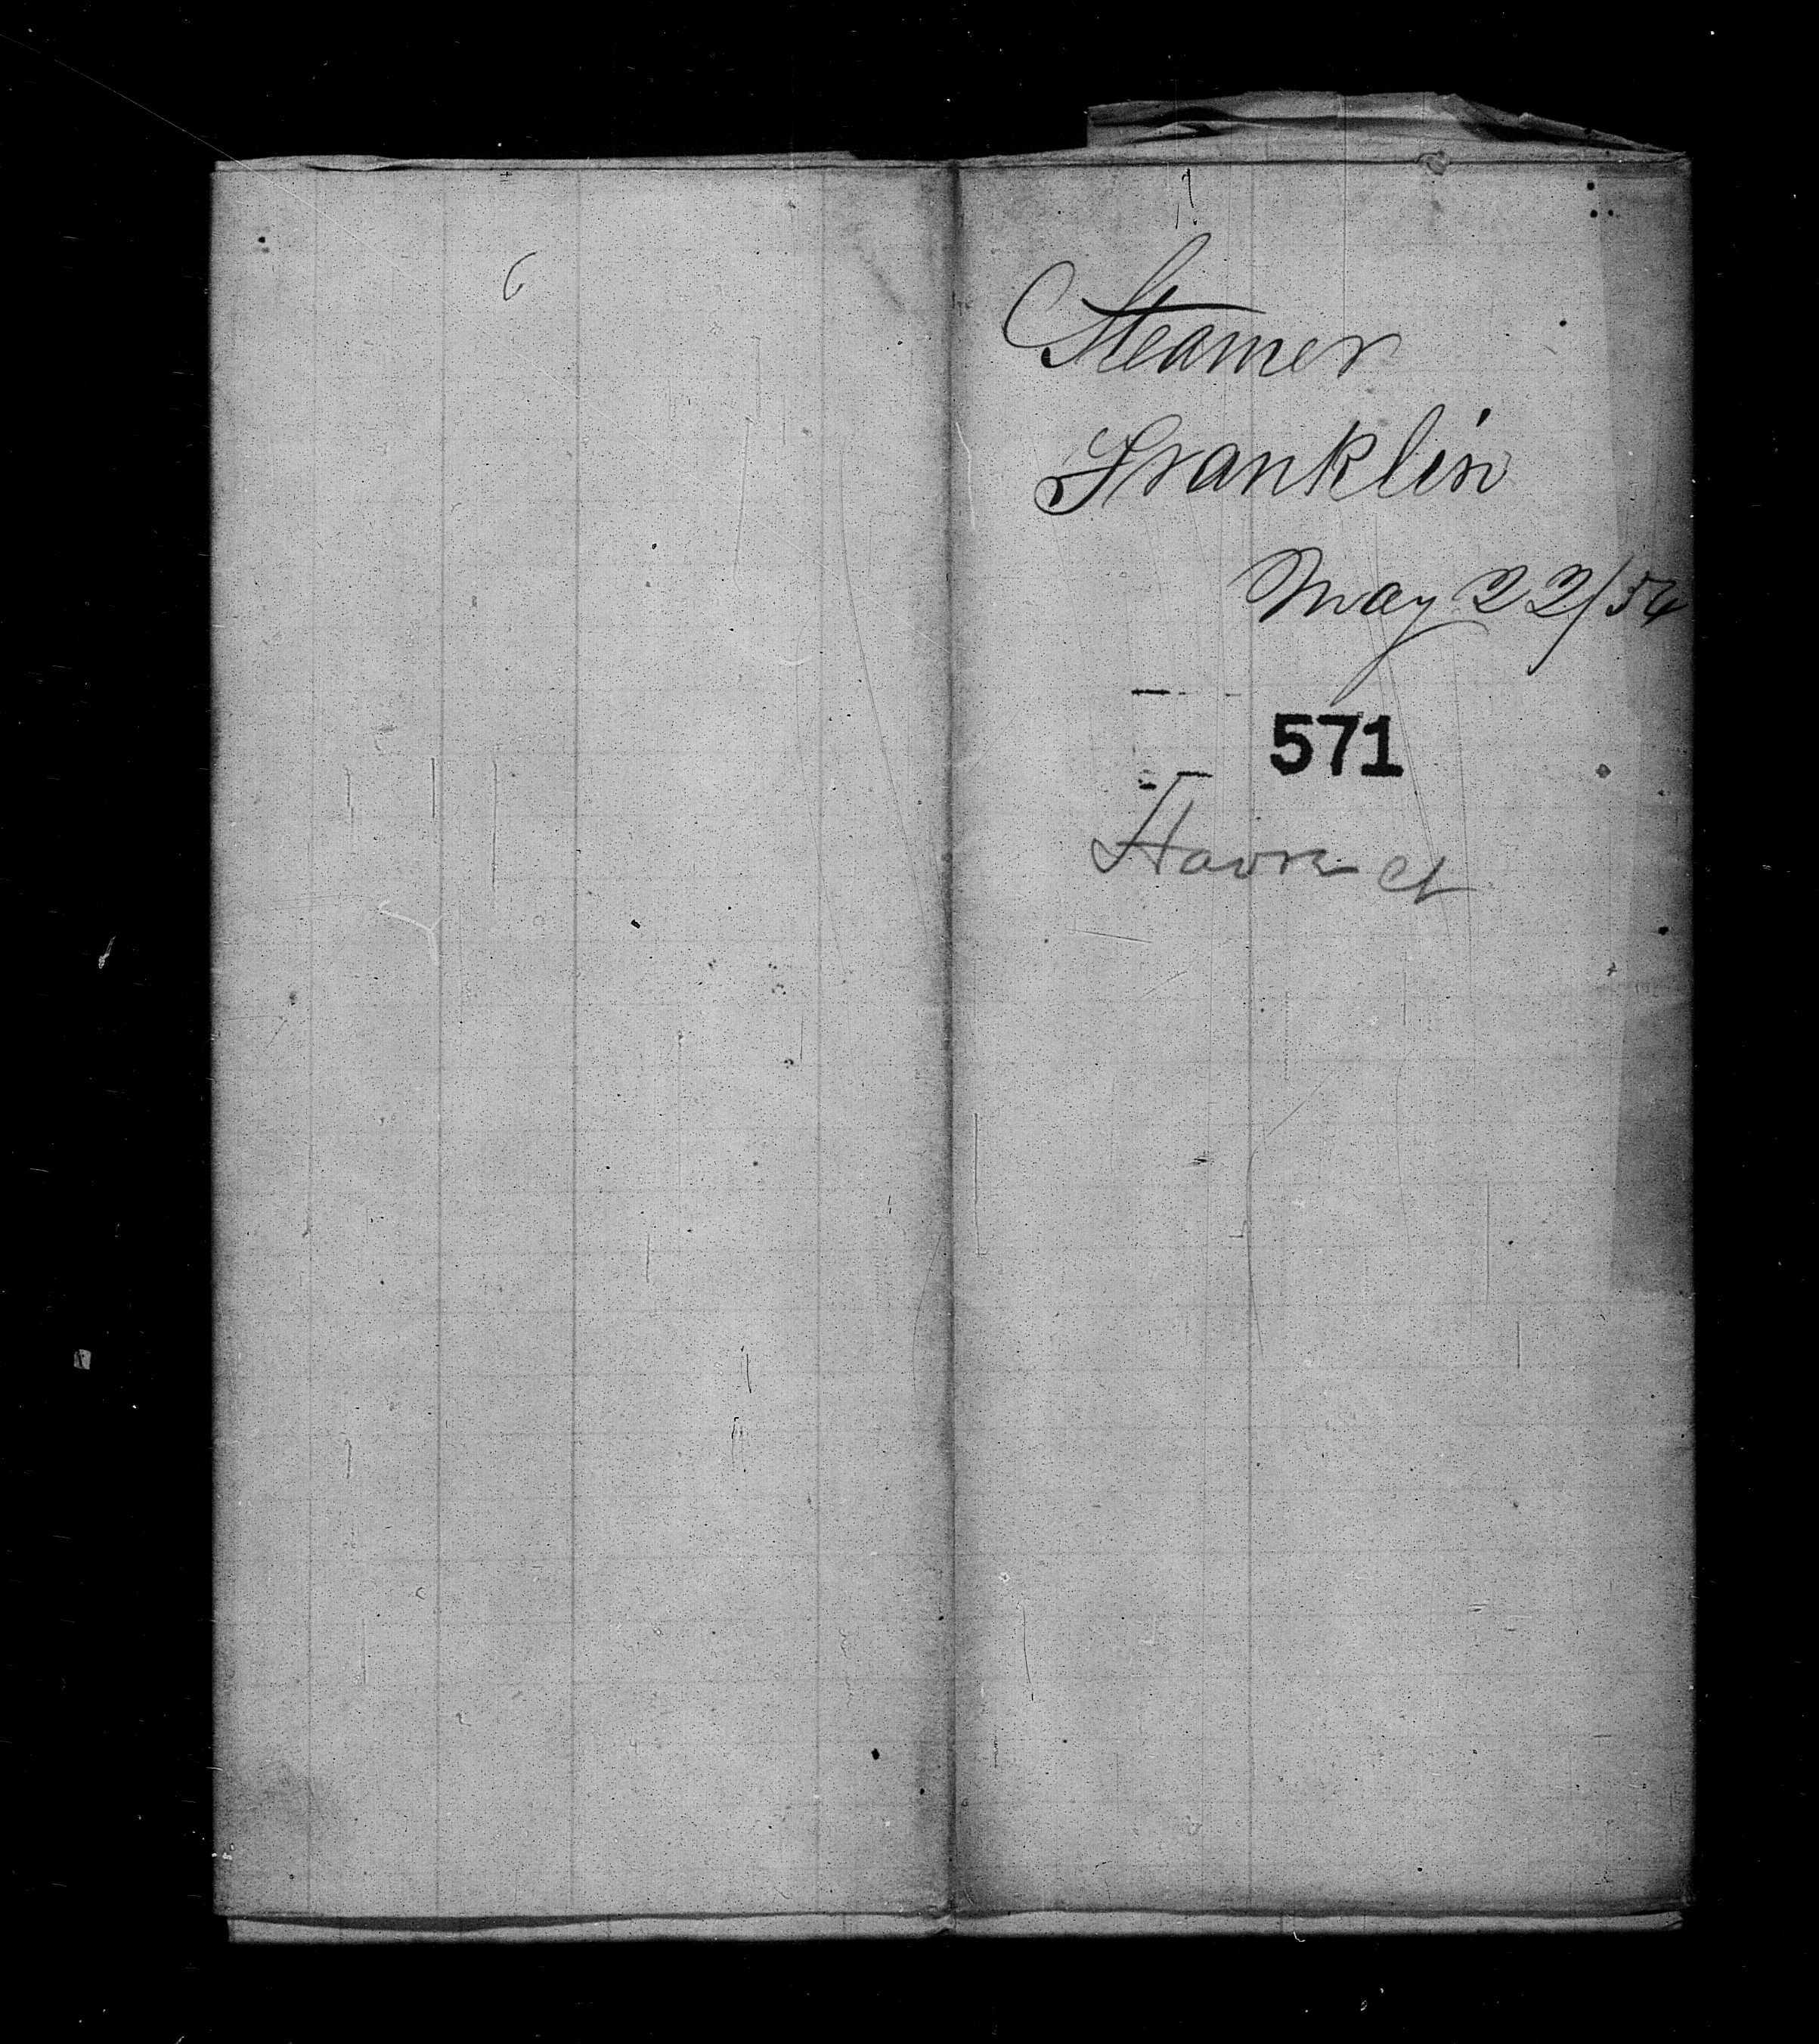 Steamer
Franklin
May 22/54
571
Havre